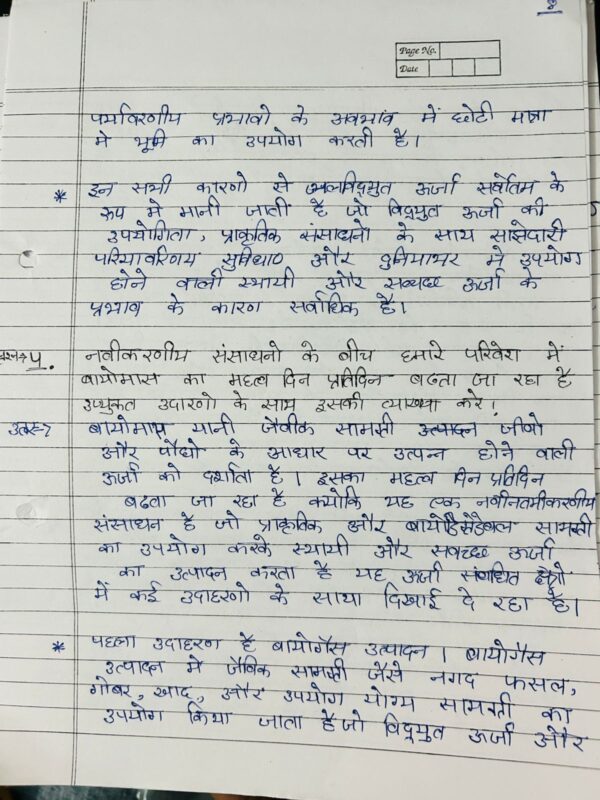 Page No.
Date
पर्यावरणीय प्रभावो के अवभांव में छोटी मात्रा
मे भूमि का उपयोग करती है।
* इन सभी कारणो से ज्वलविद्युमुत ऊर्जा सर्वोतम के
रूप मे मानी जाती है जो विद्युमुत ऊर्जा की
उपयोगिता, प्राकृतिक संसाधनो के साथ साझेदारी
परियावरिणय सुविधाए और दुनियाभर मे उपयोग
होने वाली स्थायी और सव्चछ ऊर्जा के
प्रभाव के कारण सर्वाधिक है।
प्रश्न→ 4. नवीकरणीय संसाधनो के बीच हमारे परिवेश में
बायोमास का महत्व दिन प्रतिदिन बढता जा रहा है
उप्युकत उदारणो के साथ इसकी व्याख्या करे।
उत्तर→ बायोमास यानी जैवीक सामग्री उत्पादन जीवो
और पौधो के आधार पर उत्पन्न होने वाली
ऊर्जा को दर्शाता है। इसका महत्व दिन प्रतिदिन
बढता जा रहा है क्योकि यह एक नवीनतमीकरणीय
संसाधन है जो प्राकृतिक और बायोडिग्रेडेबल सामग्री
का उपयोग करके स्थायी और सवच्छ ऊर्जा
का उत्पादन करता है यह ऊर्जा संबधित क्षेत्रो
में कई उदाहरणो के साथा दिखाई दे रहा है।
* पहला उदाहरण है बायोगैस उत्पादन। बायोगैस
उत्पादन मे जैविक सामग्री जैसे नगद फसल,
गोबर, खाद, और उपयोग योग्य सामग्री का
उपयोग किया जाता है जो विद्युमुत ऊर्जा और